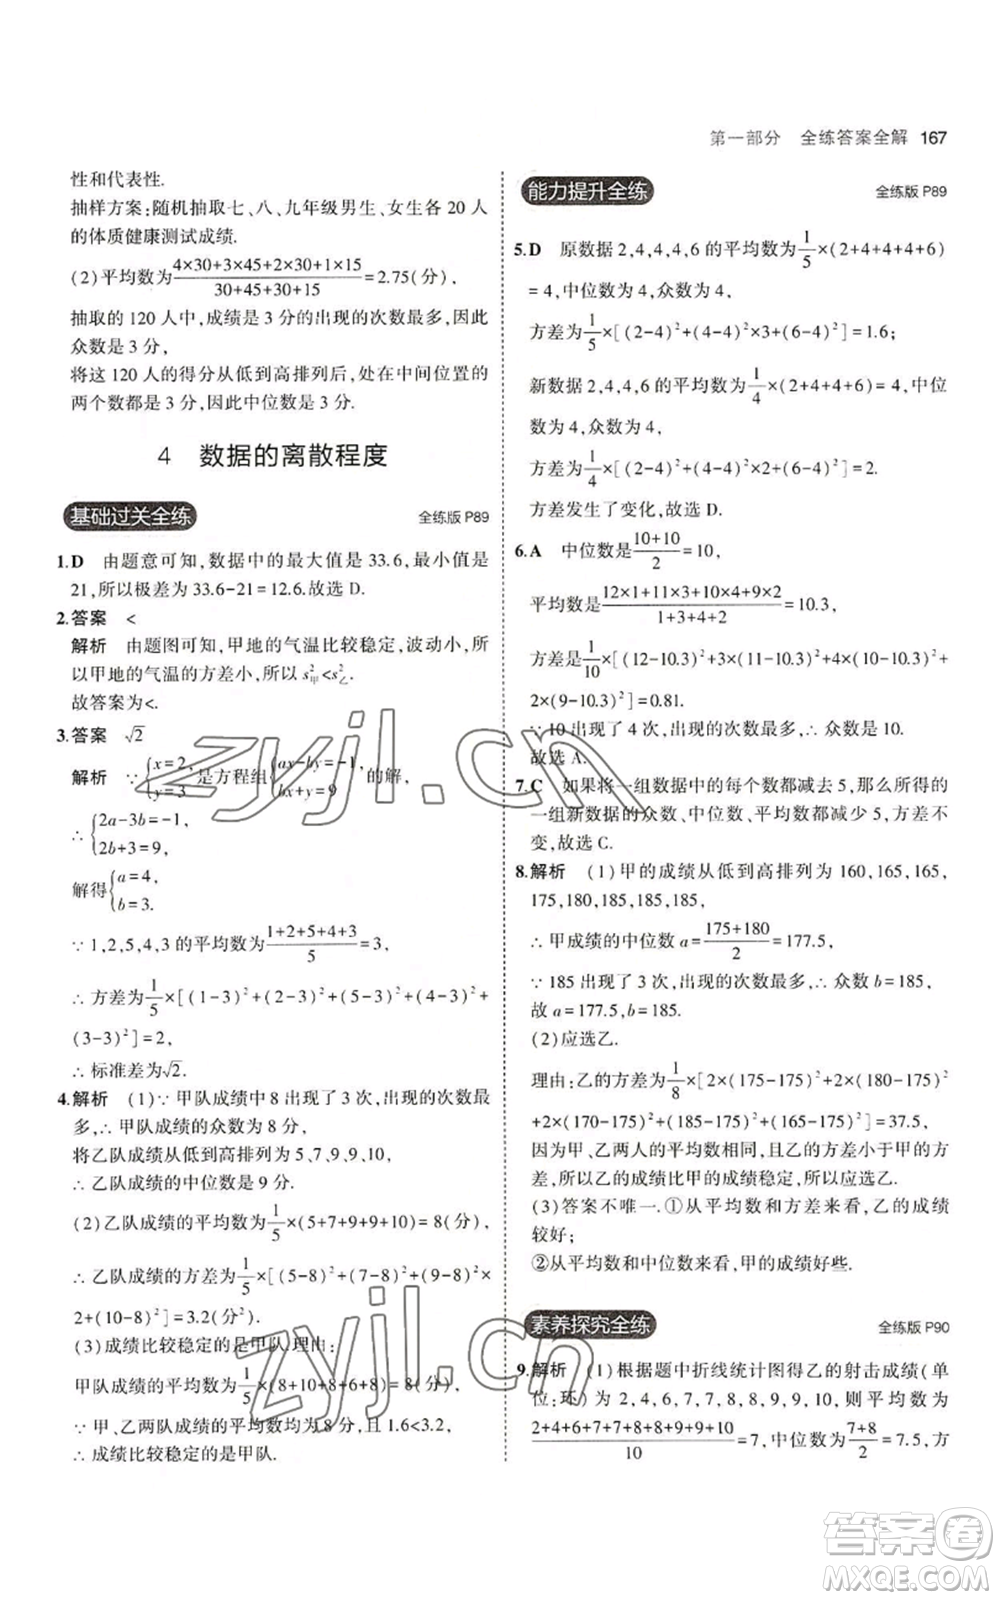 第一部分 全练答案全解 167
性和代表性.
抽样方案:随机抽取七、八、九年级男生、女生各 20 人
的体质健康测试成绩.
(2)平均数为(4×30+3×45+2×30+1×15)/(30+45+30+15)=2.75(分),
抽取的 120 人中,成绩是 3 分的出现的次数最多,因此
众数是 3 分,
将这 120 人的得分从低到高排列后,处在中间位置的
两个数都是 3 分,因此中位数是 3 分.
4 数据的离散程度
基础过关全练 全练版 P89
1.D 由题意可知,数据中的最大值是 33.6,最小值是
21,所以极差为 33.6-21=12.6.故选 D.
2.答案 <
解析 由题图可知,甲地的气温比较稳定,波动小,所
以甲地的气温的方差小,所以 s²甲<s²乙.
故答案为<.
3.答案 √2
解析 ∵{x=2, y=3 是方程组{ax-by=-1, bx+y=9 的解,
∴{2a-3b=-1, 2b+3=9,
解得{a=4, b=3.
∵1,2,5,4,3 的平均数为(1+2+5+4+3)/5=3,
∴方差为1/5×[(1-3)²+(2-3)²+(5-3)²+(4-3)²+
(3-3)²]=2,
∴标准差为√2.
4.解析 (1)∵甲队成绩中 8 出现了 3 次,出现的次数最
多,∴甲队成绩的众数为 8 分,
将乙队成绩从低到高排列为 5、7、9、9、10,
∴乙队成绩的中位数是 9 分.
(2)乙队成绩的平均数为1/5×(5+7+9+9+10)=8(分),
∴乙队成绩的方差为1/5×[(5-8)²+(7-8)²+(9-8)²×
2+(10-8)²]=3.2(分²)
(3)成绩比较稳定的是甲队.理由:
甲队成绩的平均数为1/5×(8+10+8+6+8)=8(分),
∵甲、乙两队成绩的平均数均为 8 分,且 1.6<3.2,
∴成绩比较稳定的是甲队.
能力提升全练 全练版 P89
5.D 原数据 2,4,4,4,6 的平均数为1/5×(2+4+4+4+6)
=4,中位数为 4,众数为 4,
方差为1/5×[(2-4)²+(4-4)²×3+(6-4)²]=1.6;
新数据 2,4,4,6 的平均数为1/4×(2+4+4+6)=4,中位
数为 4,众数为 4,
方差为1/4×[(2-4)²+(4-4)²×2+(6-4)²]=2.
方差发生了变化,故选 D.
6.A 中位数是(10+10)/2=10,
平均数是(12×1+11×3+10×4+9×2)/(1+3+4+2)=10.3,
方差是1/10×[(12-10.3)²+3×(11-10.3)²+4×(10-10.3)²+
2×(9-10.3)²]=0.81.
∵10 出现了 4 次,出现的次数最多,∴众数是 10.
故选 A.
7.C 如果将一组数据中的每个数都减去 5,那么所得的
一组新数据的众数、中位数、平均数都减少 5,方差不
变,故选 C.
8.解析 (1)甲的成绩从低到高排列为 160,165,165,
175,180,185,185,185,
∴甲成绩的中位数 a=(175+180)/2=177.5,
∵185 出现了 3 次,出现的次数最多,∴众数 b=185,
故 a=177.5,b=185.
(2)应选乙.
理由:乙的方差为1/8×[2×(175-175)²+2×(180-175)²
+2×(170-175)²+(185-175)²+(165-175)²]=37.5,
因为甲、乙两人的平均数相同,且乙的方差小于甲的方
差,所以乙的成绩比甲的成绩稳定,所以应选乙.
(3)答案不唯一.①从平均数和方差来看,乙的成绩
较好;
②从平均数和中位数来看,甲的成绩好些.
素养探究全练 全练版 P90
9.解析 (1)根据题中折线统计图得乙的射击成绩(单
位:环)为 2,4,6,7,7,8,8,9,9,10,则平均数为
(2+4+6+7+7+8+8+9+9+10)/10=7,中位数为(7+8)/2=7.5,方
zyjl.cn
zyjl.cn
答案圈
MXQE.COM